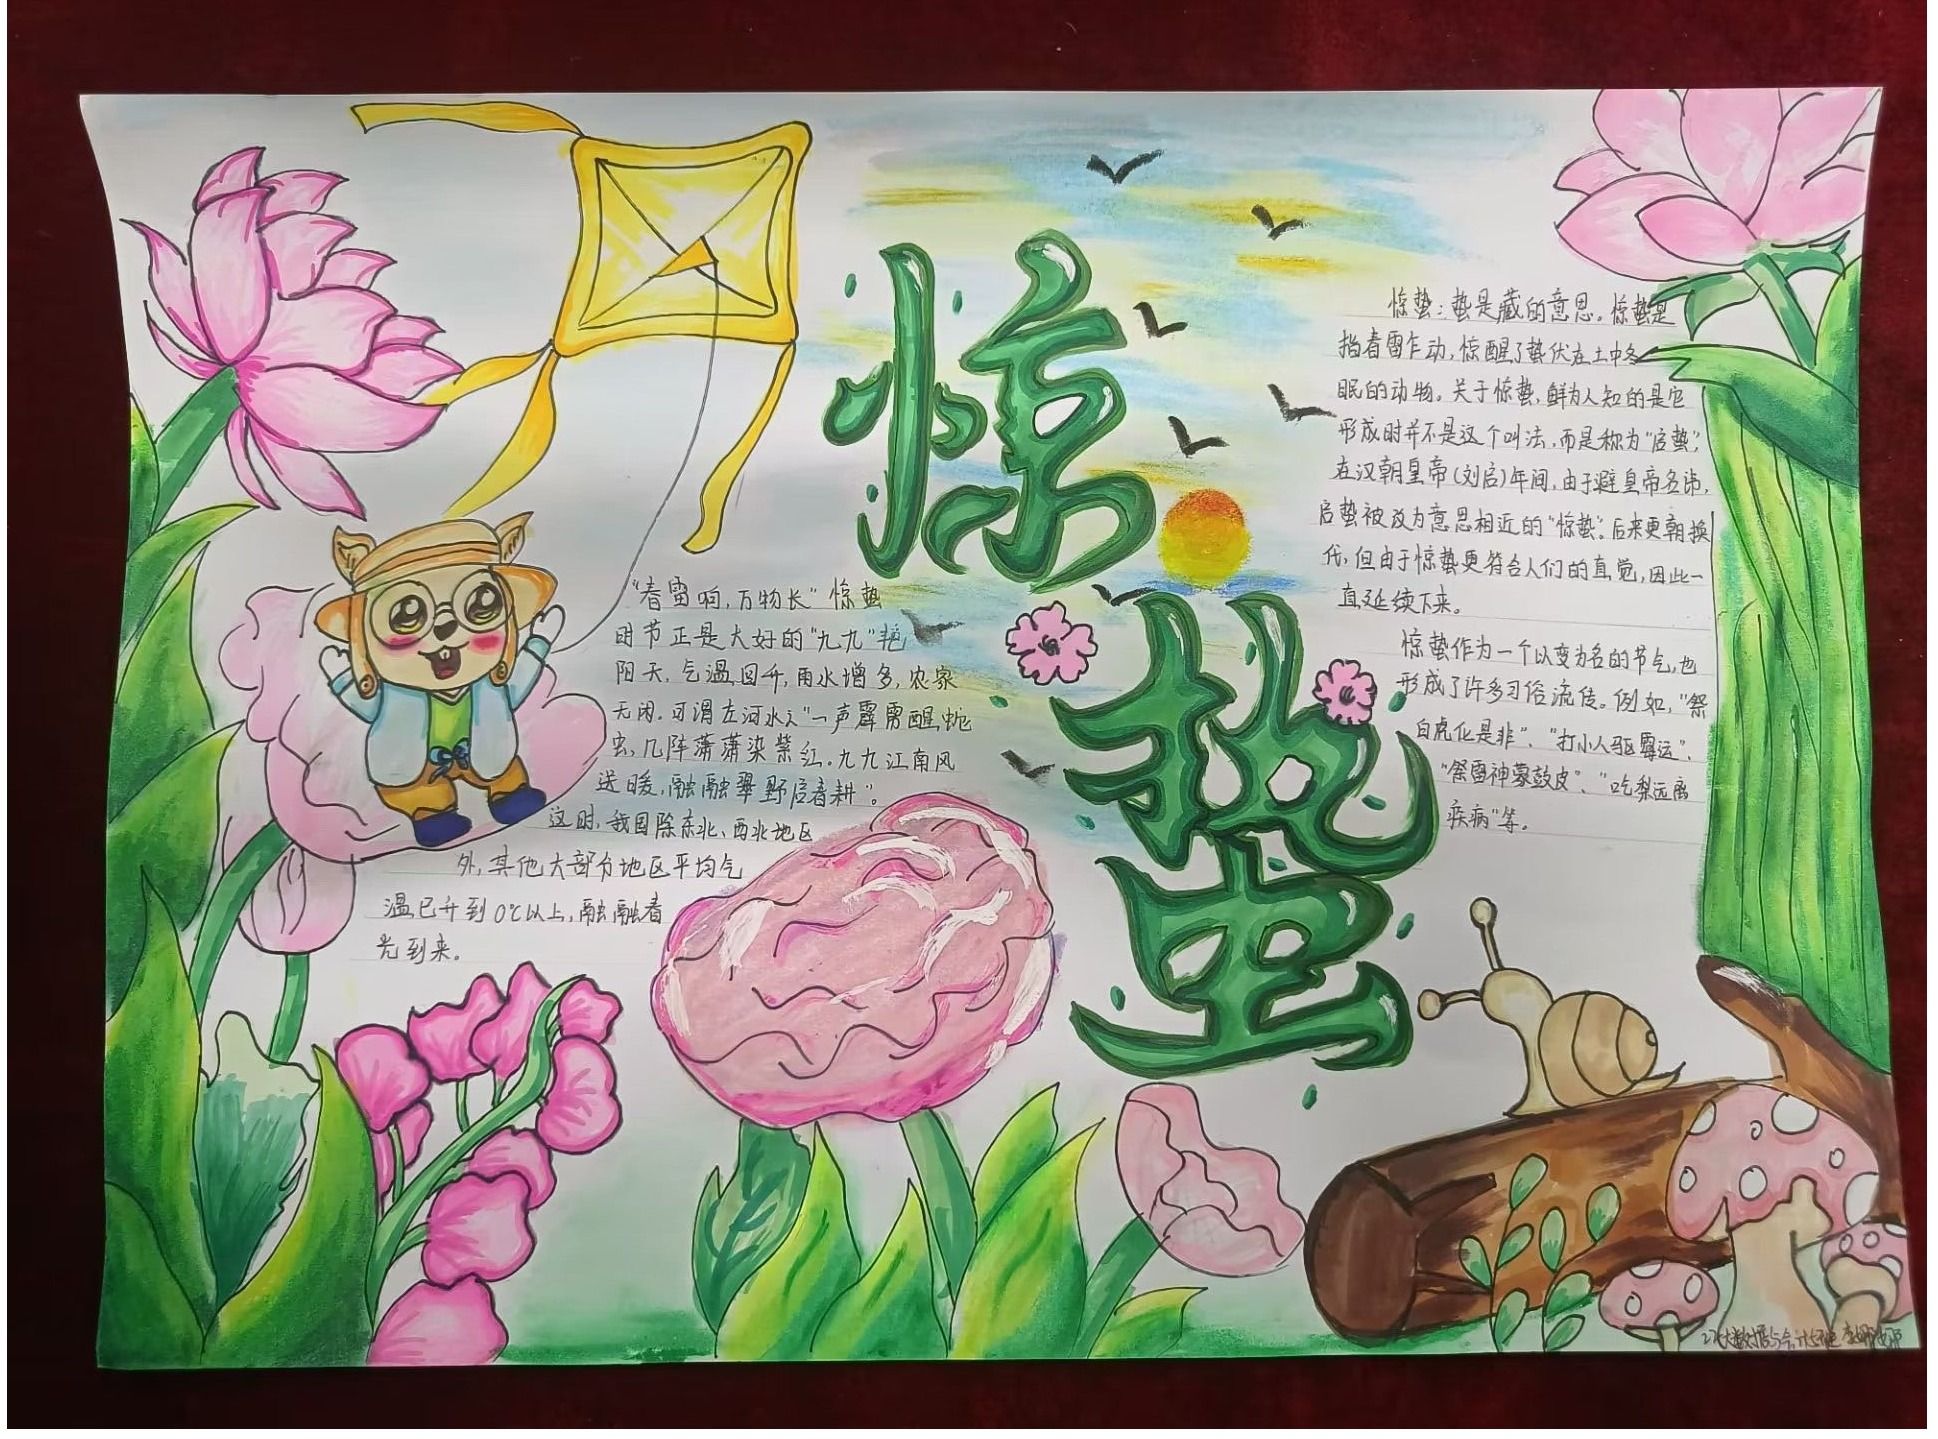 惊
蛰
"春雷响,万物长"惊蛰
时节正是大好的"九九"艳
阳天,气温回升,雨水增多,农家
无闲。可谓左河水之"一声霹雳醒蛇
虫,几阵潇潇染紫红。九九江南风
送暖,融融翠野启春耕"。
这时,我国除东北、西北地区
外,其他大部分地区平均气
温已升到0℃以上,融融春
光到来。
惊蛰:蛰是藏的意思。惊蛰是
指春雷乍动,惊醒了蛰伏在土中冬
眠的动物。关于惊蛰,鲜为人知的是它
形成时并不是这个叫法,而是称为"启蛰",
在汉朝皇帝(刘启)年间,由于避皇帝名讳,
启蛰被改为意思相近的"惊蛰"。后来更朝换
代,但由于惊蛰更符合人们的直觉,因此一
直延续下来。
惊蛰作为一个以变为名的节气,也
形成了许多习俗流传。例如,"祭
白虎化是非"、"打小人驱霉运"、
"祭雷神蒙鼓皮"、"吃梨远离
疾病"等。
大数据与会计